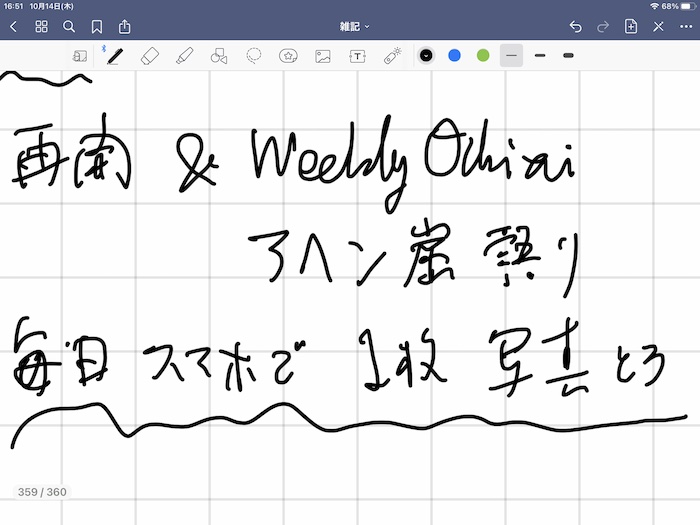 16:51 10月14日(木)
68%
雑記
再開 & Weekly Ochiai
アヘン窟 語り
毎日 スマホで 1枚 写真とろ
359 / 360